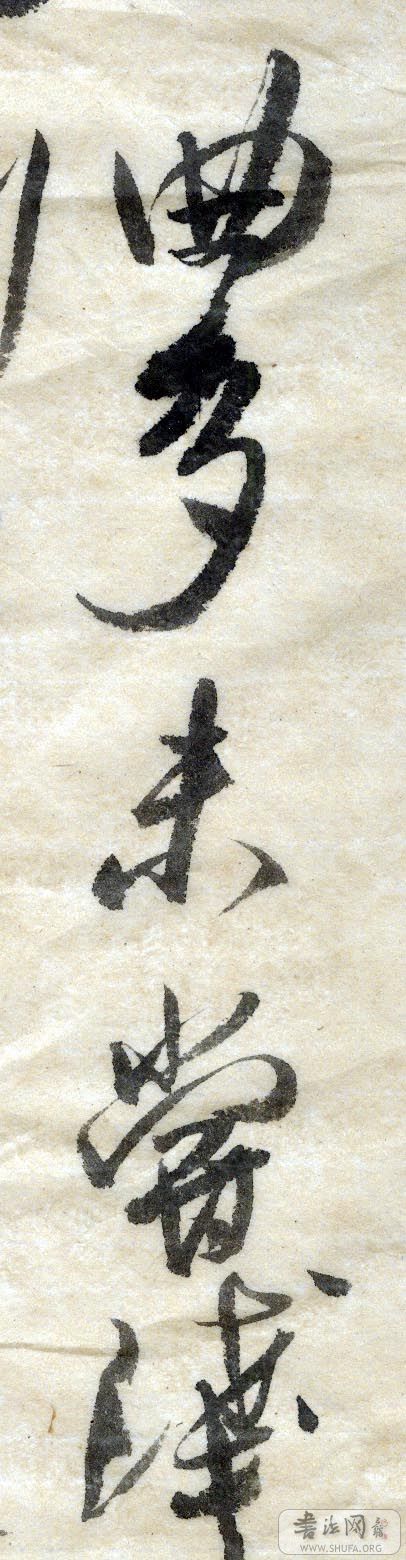 曲多未嘗
书法网
WWW.SHUFA.ORG